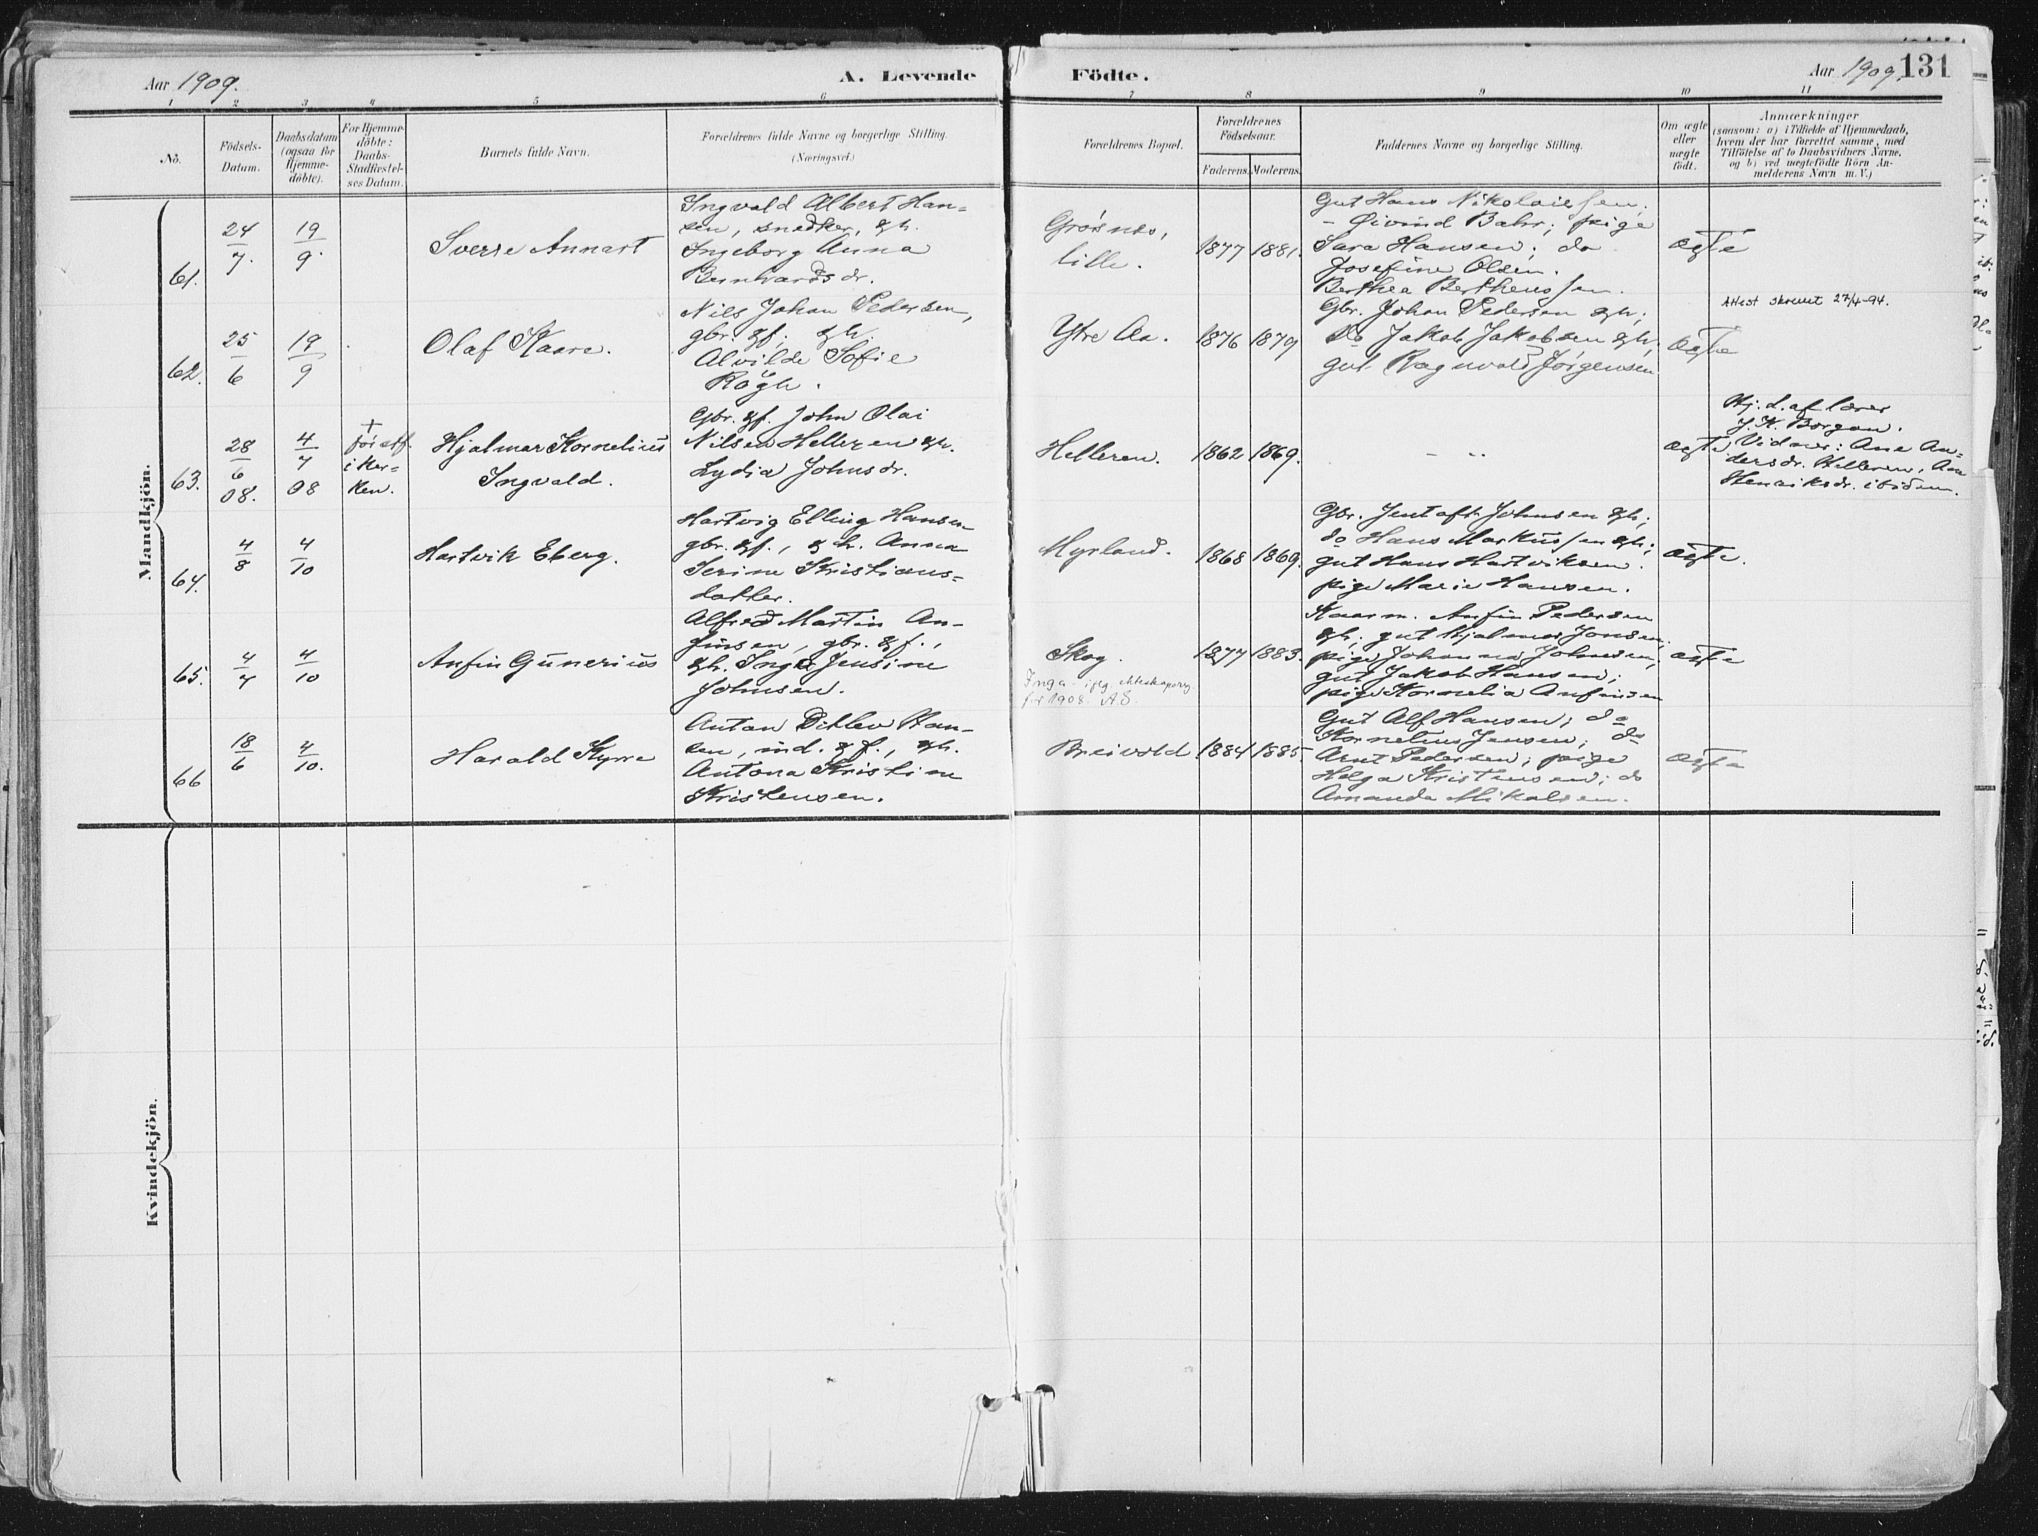 Aar 1909.
A. Levende
Födte.
Aar 1909.
131
1 2 3 4 5 6 7 8 9 10 11
No.
Födsels-
Datum.
Daabsdatum
(ogsaa for
Hjemme-
döbte).
For Hjemme-
döbte:
Daabs-
Stadfæstel-
ses Datum.
Barnets fulde Navn.
Forældrenes fulde Navne og borgerlige Stilling.
(Næringsvei.)
Forældrenes Bopæl.
Forældrenes
Födselsaar.
Faderens. Moderens.
Faddernes Navne og borgerlige Stilling.
Om ægte
eller
uægte
födt.
Anmærkninger
(saasom: a) i Tilfælde af Hjemmedaab,
hvem der har forrettet samme, med
Tilföielse af to Daabsvidners Navne,
og b) ved uægtefödte Börn An-
melderens Navn m. V.)
Mandkjön.
61.
24/7.
19/9.
Sverre Annart
Ingvald Albert Han-
sen, snedker, &h.
Ingeborg Anna
Bernhardsdr.
Grøsnes,
lille.
1877 1881.
Gut Hans Nikolaissen,
- Øivind Bahr; pige
Sara Hansen; do
Josefine Olsen.
Berthea Bertheussen.
ægte
62.
25/6
19/9
Olaf Kaare.
Nils Johan Pedersen,
gbr. &f., &h.
Alvilde Sofie
Røgh.
Ytre Aa.
1876 1879
Gbr. Johan Pedersen &h;
Do Jakob Jakobsen &h,
gut Ragnvald Jørgensen
ægte
Attest skrevet 27/4-94.
63.
28/6 08.
4/7 08
+
før stf.
i kir-
ken.
Hjalmar Kornelius
Ingvald.
Gbr. &f. John Olai
Nilsen Helleren &h.
Lydia Johnsdr.
Helleren.
1862 1869.
- "
ægte
Hj. d. af lærer
J. K. Borgan.
Vidner: Ane An-
dersdr. Helleren, Ane
Henriksdr. ibidem.
64.
4/8
4/10
Hartvik Eberg.
Hartvig Elling Hansen
gbr. &f., & h. Anna
Serine Kristians-
datter.
Myrland.
1868 1869.
Gbr. Jentoft Johnsen &h;
do Hans Markussen &h;
gut Hans Hartviksen.
pige Marie Hansen.
ægte.
65.
4/7
4/10
Anfin Gunerius
Alfred Martin An-
finsen, gbr. &f.,
&h. Inga Jensine
Johnsen.
Skog.
Inga i flg. ekteskapsreg
før 1908. A.S.
1877 1883.
Kaarm. Anfin Pedersen
&h; gut Hjalmar Jonsen,
pige Johanna Johnsen,
gut Jakob Hansen;
pige Kornelia Anfinsen
ægte
66
18/6
4/10.
Harald Kyrre
Anton Ditlev Han-
sen, ind. &f., &h.
Antona Kristine
Kristensen.
Breivold
1884 1885.
Gut Alf Hansen; do
Kornelius Jensen; do
Arnt Pedersen; pige
Helga Kristensen; do
Amanda Mikalsen.
ægte
Kvindekjön.